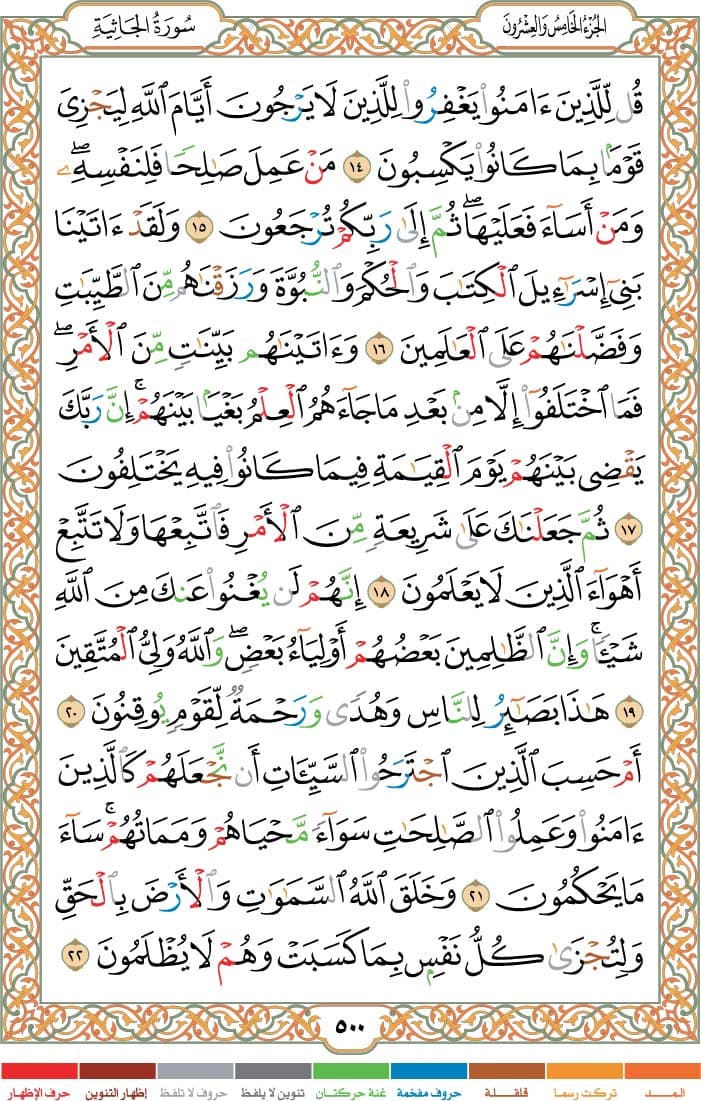 الجُزْءُ الخَامِسُ وَالعِشْرُونَ
سُورَةُ الجَاثِيَةِ
قُل لِّلَّذِينَ ءَامَنُوا۟ يَغْفِرُوا۟ لِلَّذِينَ لَا يَرْجُونَ أَيَّامَ ٱللَّهِ لِيَجْزِىَ
قَوْمًۢا بِمَا كَانُوا۟ يَكْسِبُونَ ١٤ مَنْ عَمِلَ صَـٰلِحًا فَلِنَفْسِهِۦ ۖ
وَمَنْ أَسَآءَ فَعَلَيْهَا ۖ ثُمَّ إِلَىٰ رَبِّكُمْ تُرْجَعُونَ ١٥ وَلَقَدْ ءَاتَيْنَا
بَنِىٓ إِسْرَٰٓءِيلَ ٱلْكِتَـٰبَ وَٱلْحُكْمَ وَٱلنُّبُوَّةَ وَرَزَقْنَـٰهُم مِّنَ ٱلطَّيِّبَـٰتِ
وَفَضَّلْنَـٰهُمْ عَلَى ٱلْعَـٰلَمِينَ ١٦ وَءَاتَيْنَـٰهُم بَيِّنَـٰتٍ مِّنَ ٱلْأَمْرِ ۖ
فَمَا ٱخْتَلَفُوٓا۟ إِلَّا مِنۢ بَعْدِ مَا جَآءَهُمُ ٱلْعِلْمُ بَغْيًۢا بَيْنَهُمْ ۚ إِنَّ رَبَّكَ
يَقْضِى بَيْنَهُمْ يَوْمَ ٱلْقِيَـٰمَةِ فِيمَا كَانُوا۟ فِيهِ يَخْتَلِفُونَ
١٧ ثُمَّ جَعَلْنَـٰكَ عَلَىٰ شَرِيعَةٍ مِّنَ ٱلْأَمْرِ فَٱتَّبِعْهَا وَلَا تَتَّبِعْ
أَهْوَآءَ ٱلَّذِينَ لَا يَعْلَمُونَ ١٨ إِنَّهُمْ لَن يُغْنُوا۟ عَنكَ مِنَ ٱللَّهِ
شَيْـًٔا ۚ وَإِنَّ ٱلظَّـٰلِمِينَ بَعْضُهُمْ أَوْلِيَآءُ بَعْضٍ ۖ وَٱللَّهُ وَلِىُّ ٱلْمُتَّقِينَ
١٩ هَـٰذَا بَصَـٰٓئِرُ لِلنَّاسِ وَهُدًى وَرَحْمَةٌ لِّقَوْمٍ يُوقِنُونَ ٢٠
أَمْ حَسِبَ ٱلَّذِينَ ٱجْتَرَحُوا۟ ٱلسَّيِّـَٔاتِ أَن نَّجْعَلَهُمْ كَٱلَّذِينَ
ءَامَنُوا۟ وَعَمِلُوا۟ ٱلصَّـٰلِحَـٰتِ سَوَآءً مَّحْيَاهُمْ وَمَمَاتُهُمْ ۚ سَآءَ
مَا يَحْكُمُونَ ٢١ وَخَلَقَ ٱللَّهُ ٱلسَّمَـٰوَٰتِ وَٱلْأَرْضَ بِٱلْحَقِّ
وَلِتُجْزَىٰ كُلُّ نَفْسٍۭ بِمَا كَسَبَتْ وَهُمْ لَا يُظْلَمُونَ ٢٢
٥٠٠
المــــد تركت رسما قلقـــلة حروف مفخمة غنة حركتـان تنوين لا يلفظ حروف لا تلفظ إظهار التنوين حرف الإظهار